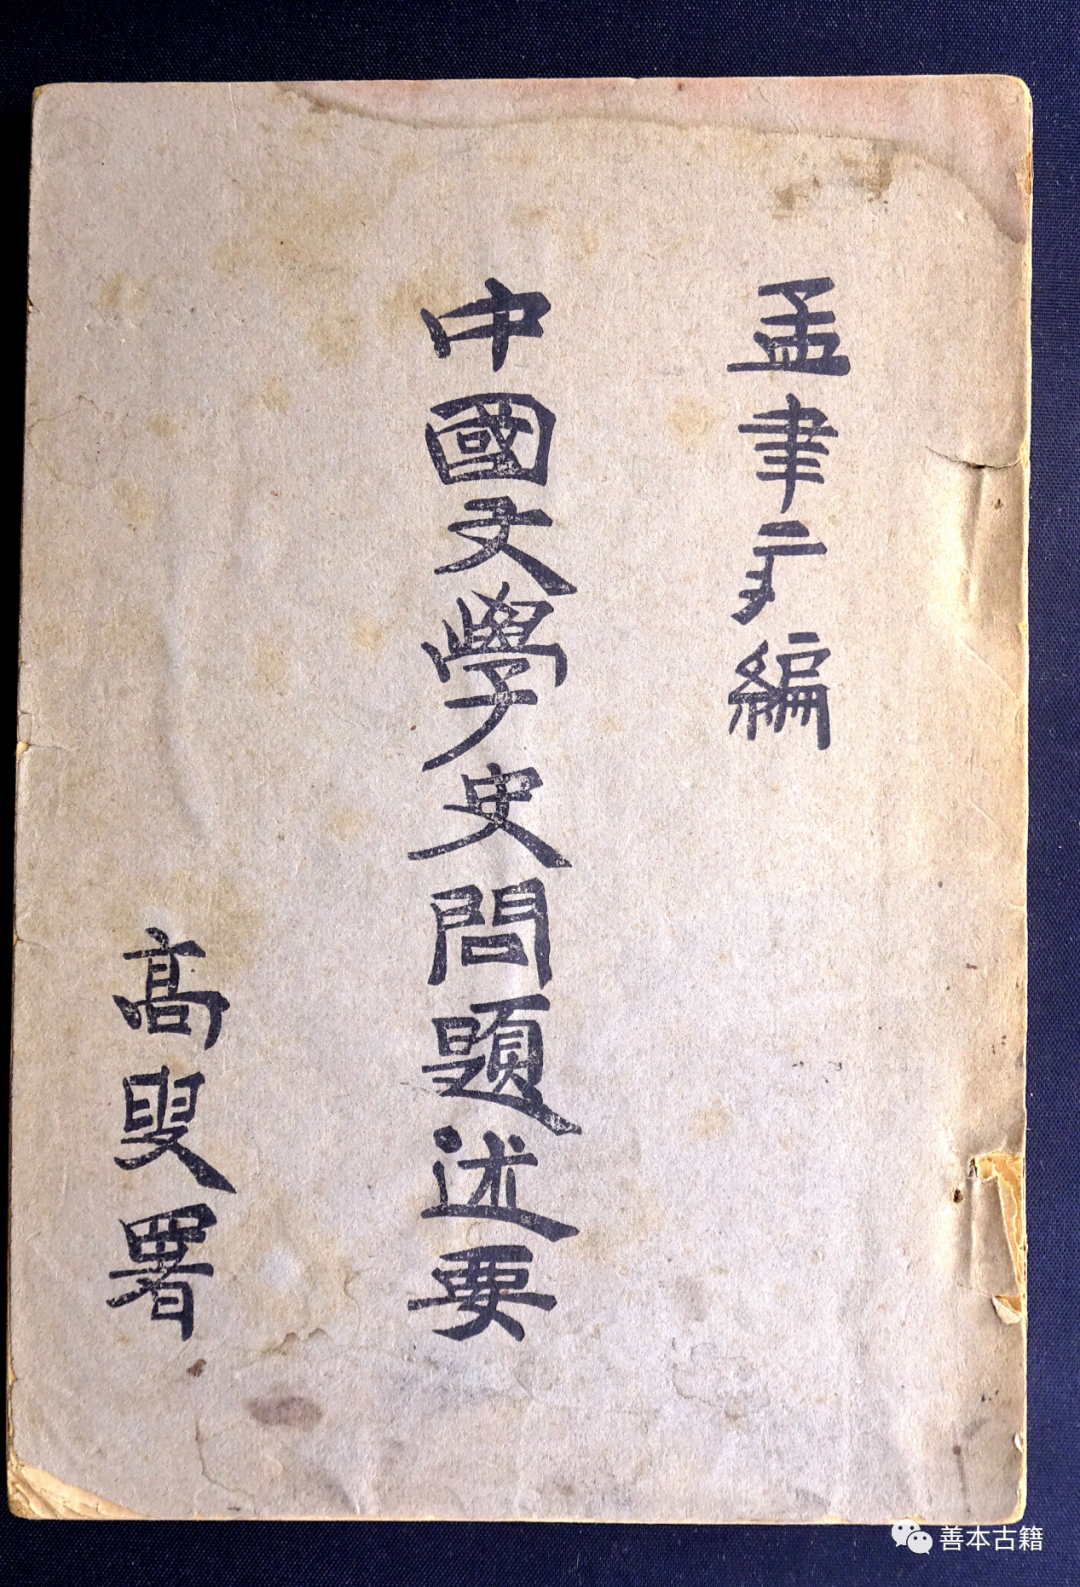 孟聿編
中國文學史問題述要
高叟署
善本古籍